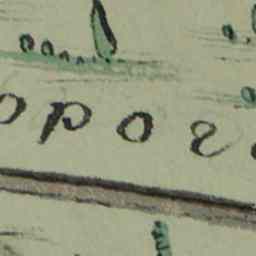 орог